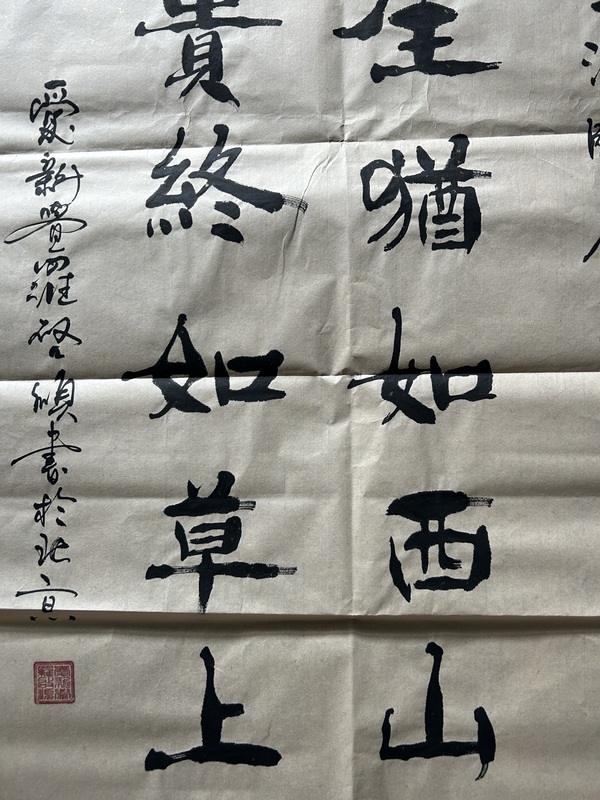 生猶如西山
貴終如草上
愛新覺羅啓書於北京